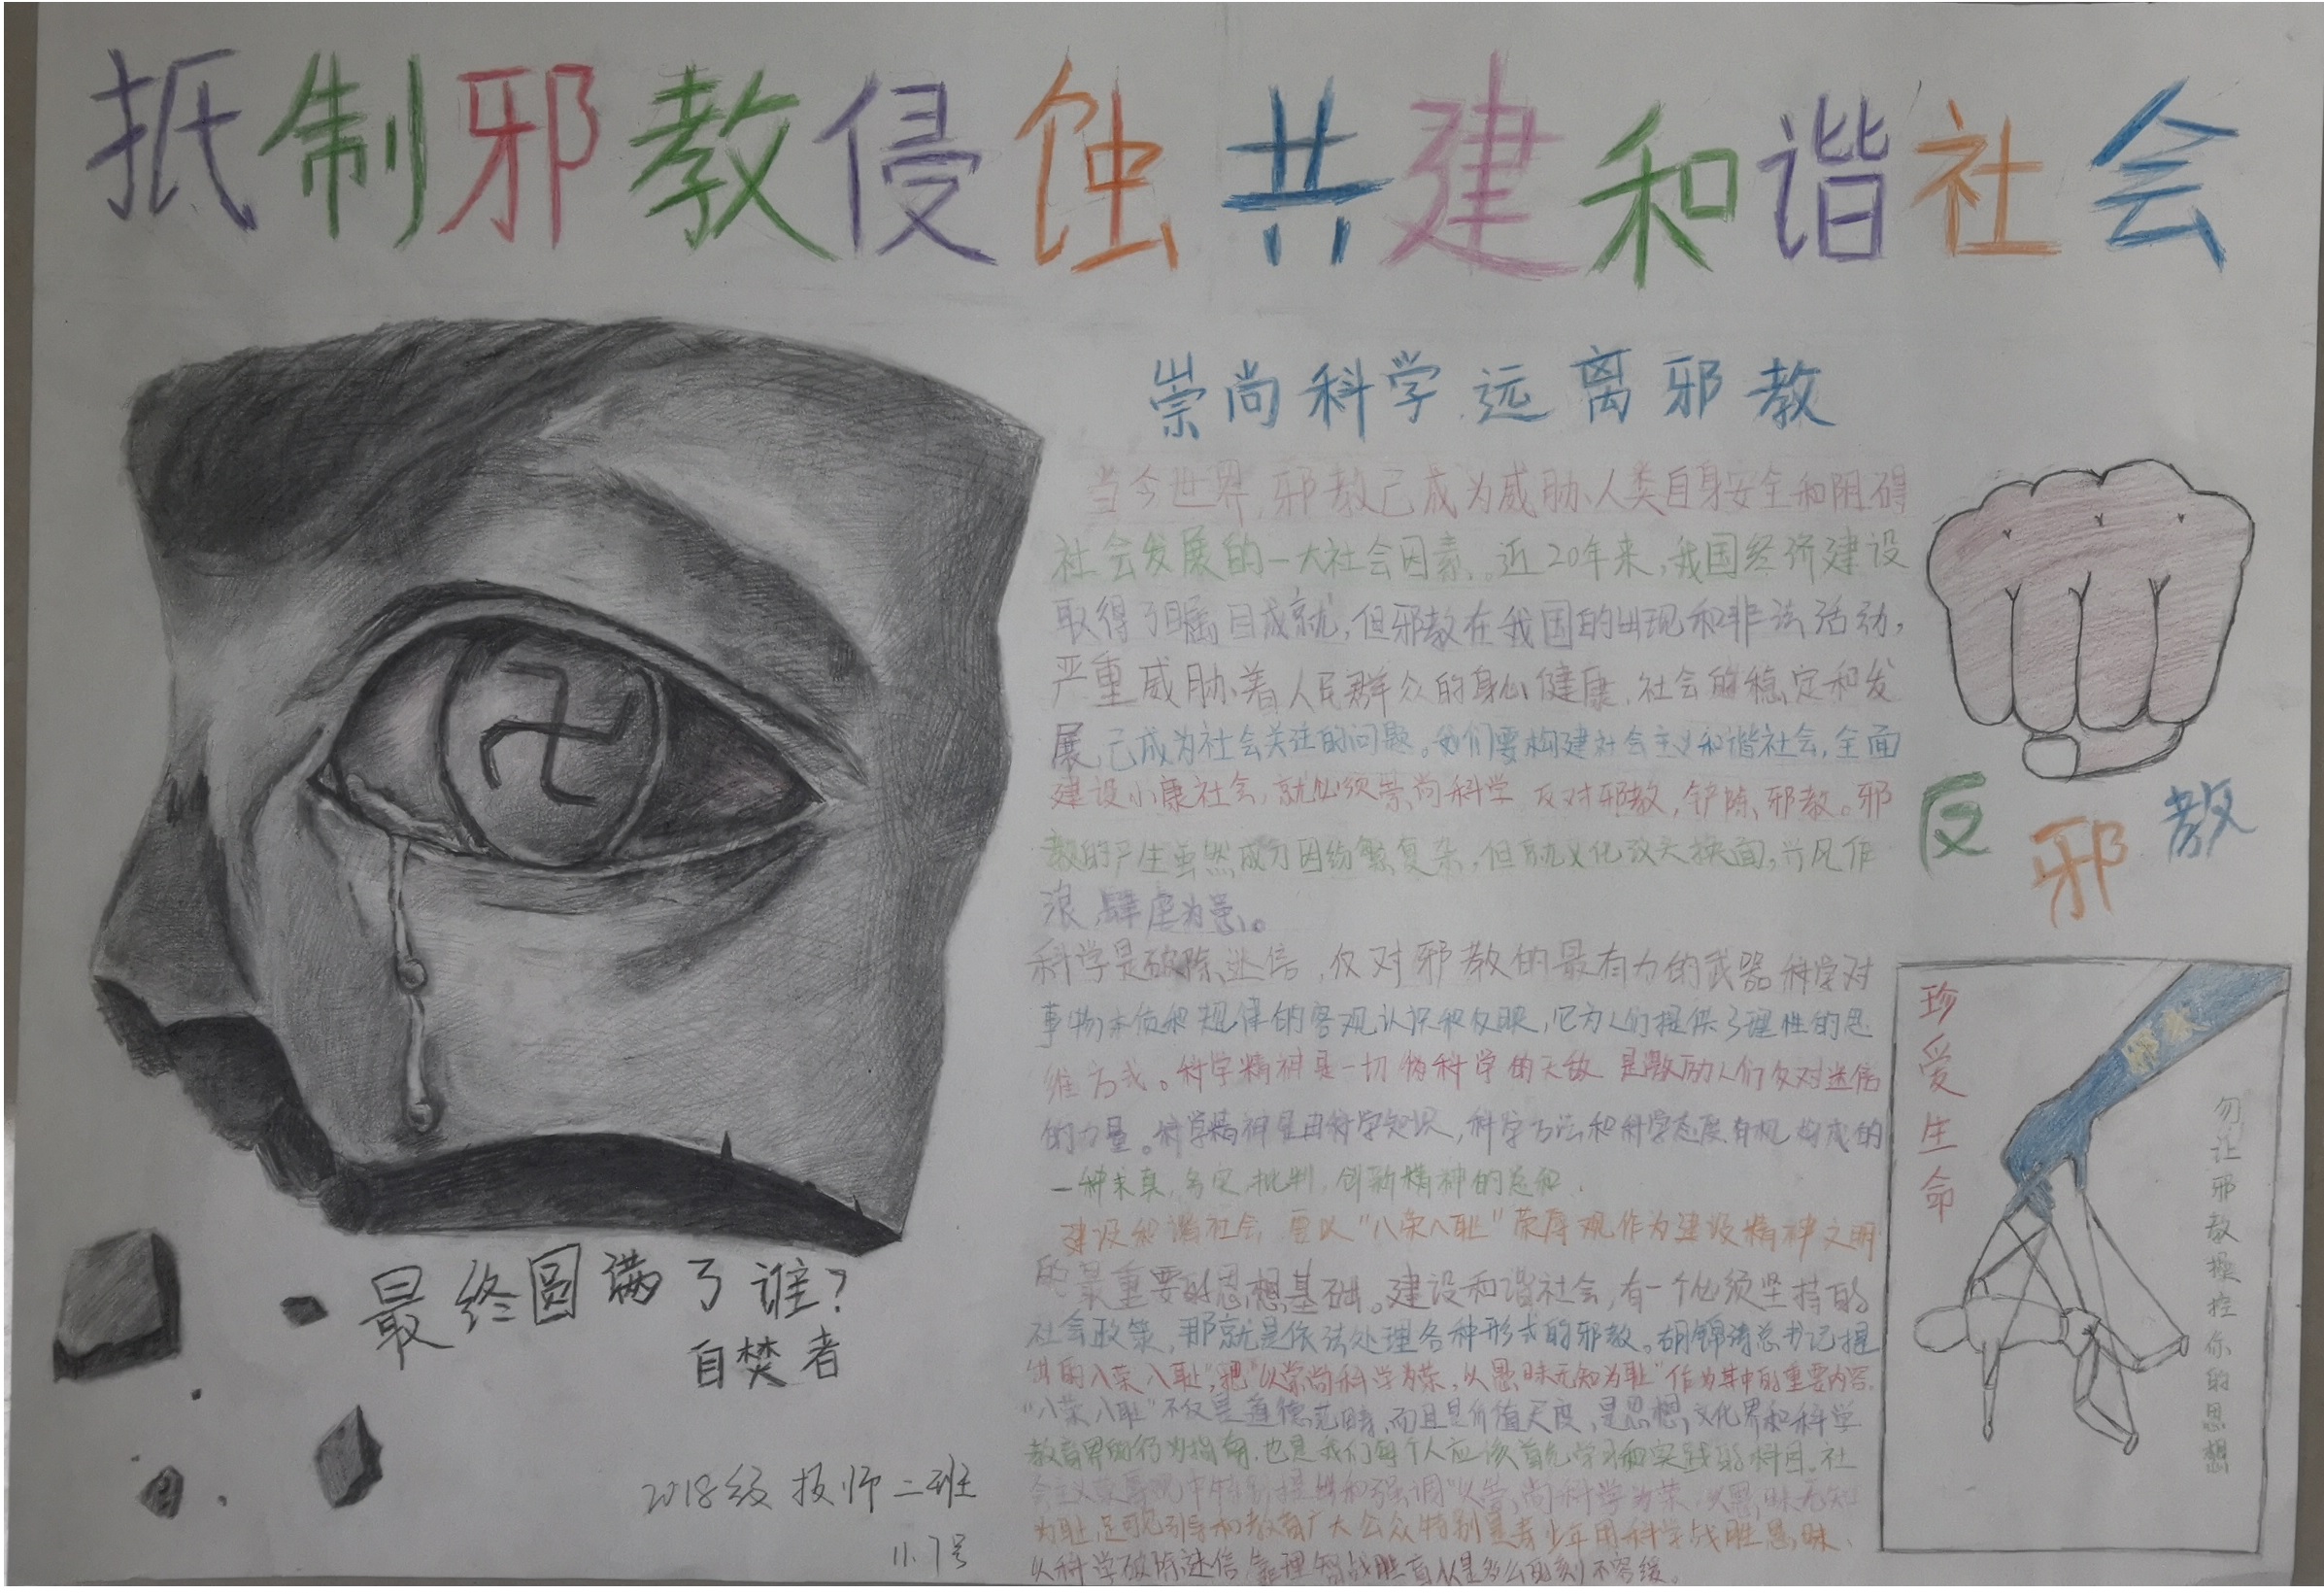 抵制邪教侵蚀共建和谐社会
崇尚科学远离邪教
当今世界,邪教已成为威胁人类自身安全和阻碍
社会发展的一大社会因素。近20年来,我国经济建设
取得了瞩目成就,但邪教在我国的出现和非法活动,
严重威胁着人民群众的身心健康,社会的稳定和发
展,已成为社会关注的问题。我们要构建社会主义和谐社会,全面
建设小康社会,就必须崇尚科学 反对邪教,铲除邪教。邪
教的产生虽然成为因纷繁复杂,但就义化改头换面,兴风作
浪,肆虐为患。
科学是破除迷信,反对邪教的最有力的武器科学对
事物本质和规律的客观认识和反映,它为人们提供了理性的思
维方式。科学精神是一切伪科学的天敌 是激励人们反对迷信
的力量。科学精神是由科学知识,科学方法和科学态度有机构成的
一种求真,务实,批判,创新精神的总和.
建设和谐社会 要以"八荣八耻"荣辱观作为建设精神文明
的最重要的思想基础。建设和谐社会,有一个必须坚持的
社会政策,那就是依法处理各种形式的邪教。胡锦涛总书记提
出的八荣八耻",把"以崇尚科学为荣,以愚昧无知为耻"作为其中的重要内容.
"八荣八耻"不仅是道德范畴,而且是价值尺度,是思想,文化界和科学
教育界的行为指南,也是我们每个人应该首先学习和实践的科目。社
会主义荣辱观中特别提出和强调"以崇尚科学为荣,以愚昧无知
为耻,足可见引导和教育广大公众特别是青少年用科学战胜愚昧、
以科学破除迷信 靠理智战胜盲从是多么的刻不容缓。
反邪教
珍爱生命
邪教
勿让邪教操控你的思想
最终圆满了谁?
自焚者
2018级技师二班
11.7号